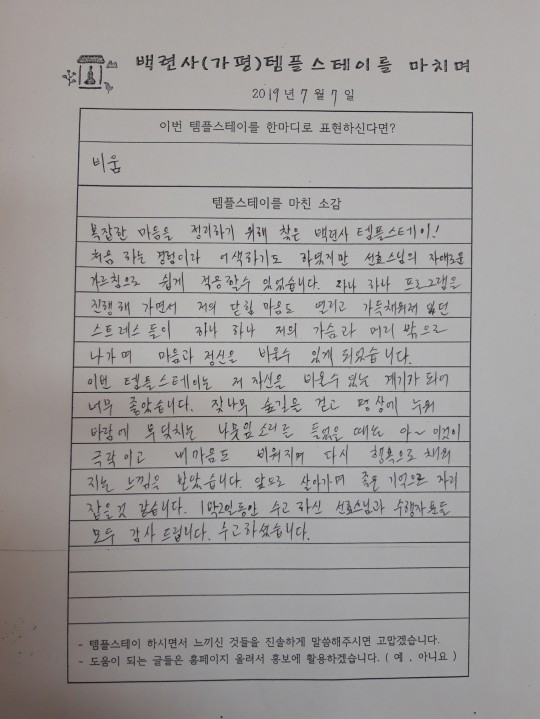 백련사(가평)템플스테이를 마치며
2019년 7월 7일
이번 템플스테이를 한마디로 표현하신다면?
비움
템플스테이를 마친 소감
복잡한 마음을 정리하기 위해 찾은 백련사 템플스테이!
처음 하는 경험이라 어색하기도 하였지만 선효스님의 자애로운
가르침으로 쉽게 적응할수 있었습니다. 하나 하나 프로그램을
진행해 가면서 저의 닫힌 마음도 열리고 가득채워져 있던
스트레스 들이 하나 하나 저의 가슴과 머리 밖으로
나가며 마음과 정신을 비울수 있게 되었습니다.
이번 템플스테이는 저 자신을 비울수 있는 계기가 되어
너무 좋았습니다. 잣나무 숲길을 걷고 평상에 누워
바람에 부딪치는 나뭇잎소리를 들었을 때는 아~ 이것이
극락이고 내마음도 비워지며 다시 행복으로 채워
지는 느낌을 받았습니다. 앞으로 살아가며 좋은 기억으로 자리
잡을것 같습니다. 1박2일동안 수고하신 선효스님과 수행자분들
모두 감사 드립니다. 수고하셨습니다.
- 템플스테이 하시면서 느끼신 것들을 진솔하게 말씀해주시면 고맙겠습니다.
- 도움이 되는 글들은 홈페이지 올려서 홍보에 활용하겠습니다. ( 예 , 아니요 )